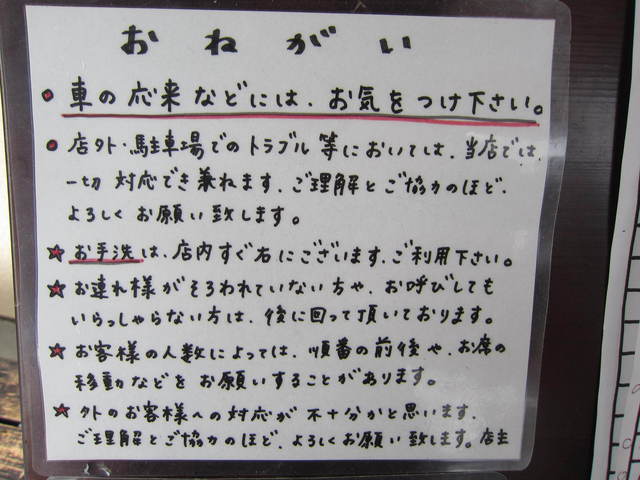 おねがい
• 車の応来などには、お気をつけ下さい。
• 店外・駐車場でのトラブル等においては、当店では、
一切対応でき兼ねます、ご理解とご協力のほど、
よろしくお願い致します。
★ お手洗は、店内すぐ右にございます、ご利用下さい。
★ お連れ様がそろわれていない方や、お呼びしても
いらっしゃらない方は、後に回って頂いております。
★ お客様の人数によっては、順番の前後や、お席の
移動などをお願いすることがあります。
★ 外のお客様への対応が不十分かと思います、
ご理解とご協力のほど、よろしくお願い致します。店主